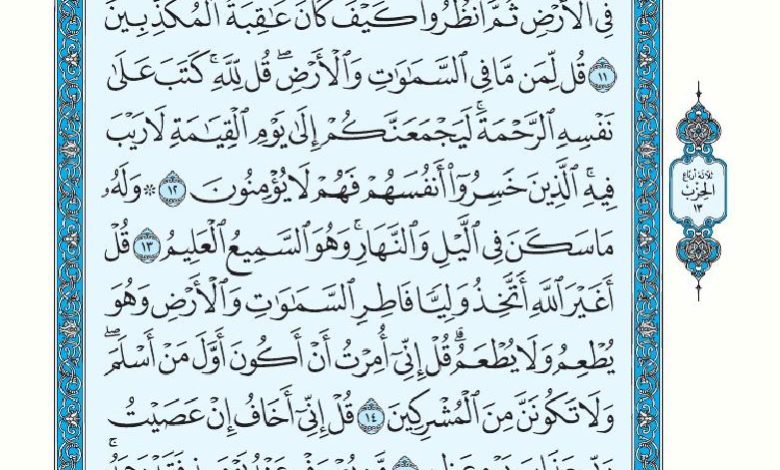 فِي ٱلْأَرْضِ ثُمَّ ٱنظُرُوا۟ كَيْفَ كَانَ عَٰقِبَةُ ٱلْمُكَذِّبِينَ
١١ قُل لِّمَن مَّا فِي ٱلسَّمَٰوَٰتِ وَٱلْأَرْضِۖ قُل لِّلَّهِۚ كَتَبَ عَلَىٰ
نَفْسِهِ ٱلرَّحْمَةَۚ لَيَجْمَعَنَّكُمْ إِلَىٰ يَوْمِ ٱلْقِيَٰمَةِ لَا رَيْبَ
فِيهِۚ ٱلَّذِينَ خَسِرُوٓا۟ أَنفُسَهُمْ فَهُمْ لَا يُؤْمِنُونَ ١٢ ۞ وَلَهُۥ
مَا سَكَنَ فِي ٱلَّيْلِ وَٱلنَّهَارِۚ وَهُوَ ٱلسَّمِيعُ ٱلْعَلِيمُ ١٣ قُلْ
أَغَيْرَ ٱللَّهِ أَتَّخِذُ وَلِيًّا فَاطِرِ ٱلسَّمَٰوَٰتِ وَٱلْأَرْضِ وَهُوَ
يُطْعِمُ وَلَا يُطْعَمُۗ قُلْ إِنِّيٓ أُمِرْتُ أَنْ أَكُونَ أَوَّلَ مَنْ أَسْلَمَۖ
وَلَا تَكُونَنَّ مِنَ ٱلْمُشْرِكِينَ ١٤ قُلْ إِنِّيٓ أَخَافُ إِنْ عَصَيْتُ
ثلاثة أرباع
الحزب
١٣